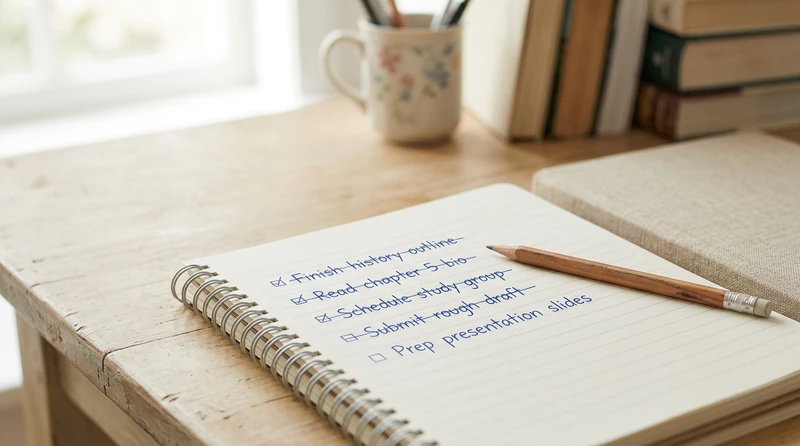 ☑ Finish history outline
☑ Read chapter 5 bio
☑ Schedule study group
☐ Submit rough draft
☐ Prep presentation slides